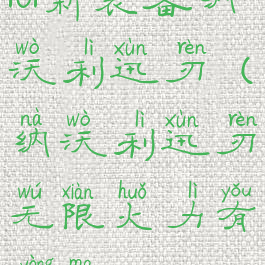 lol新装备纳
wò lì xùn rèn
沃利迅刃(
nà wò lì xùn rèn
纳沃利迅刃
wú xiàn huǒ lì yǒu
无限火力有
yòng ma